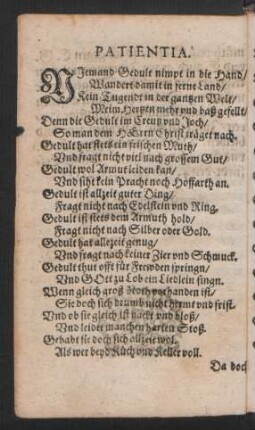 PATIENTIA.
WJemand Gedult nimpt in die Hand/
Wandert damit in ferne Land/
Kein Tugendt in der gantzen Welt/
Meim Hertzen mehr vnd baß gefellt/
Denn die Gedult im Creutz vnd Joch/
So man dem HErrn Christ träget nach.
Gedult hat stets ein frischen Muth/
Vnd fragt nicht viel nach grossem Gut/
Gedult wol Armut leiden kan/
Vnd siht kein Pracht noch Hoffarth an.
Gedult ist allzeit guter Ding/
Fragt nicht nach Edelstein vnd Ring.
Gedult ist stets dem Armuth hold/
Fragt nicht nach Silber oder Gold.
Gedult hat allezeit genug/
Vnd fragt nach keiner Zier vnd Schmuck.
Gedult thut offt für Frewden springn/
Vnd GOtt zu Lob ein Liedlein singn.
Wenn gleich groß Noth vorhanden ist/
Sie doch sich drumb nicht hermt vnd frist.
Vnd ob sie gleich ist nackt vnd bloß/
Vnd leidet manchen harten Stoß.
Gehabt sie doch sich allzeit wol,
Als wer beyd Küch vnd Keller voll.
Da doch